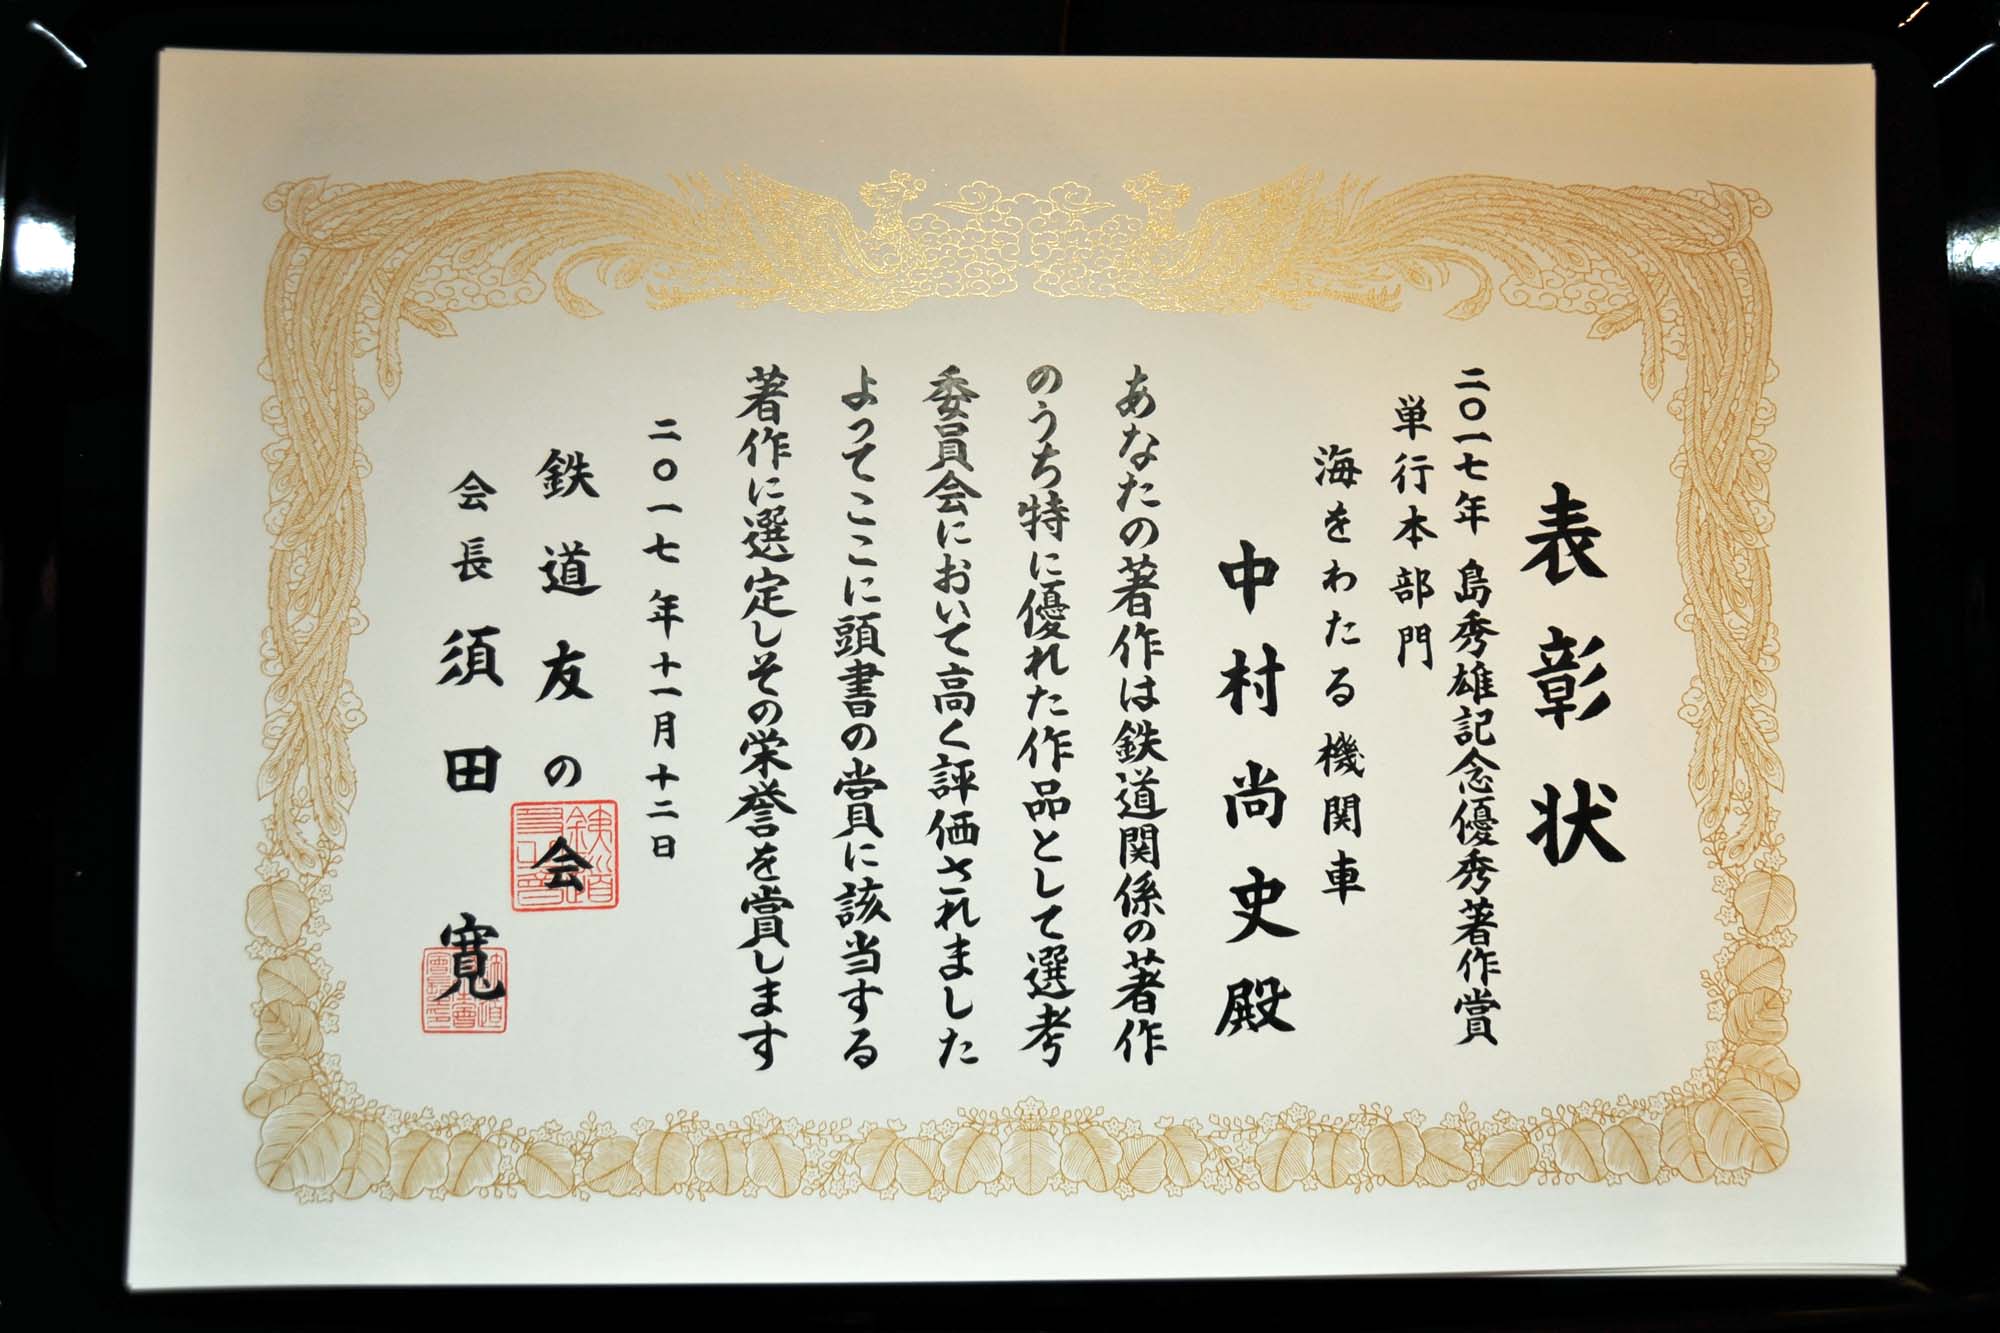 表彰状
二〇一七年 島秀雄記念優秀著作賞
単行本部門
海をわたる機関車
中村尚史殿
あなたの著作は鉄道関係の著作
のうち特に優れた作品として選考
委員会において高く評価されました
よってここに頭書の賞に該当する
著作に選定しその栄誉を賞します
二〇一七年十一月十二日
鉄道友の会
会長 須田 寛